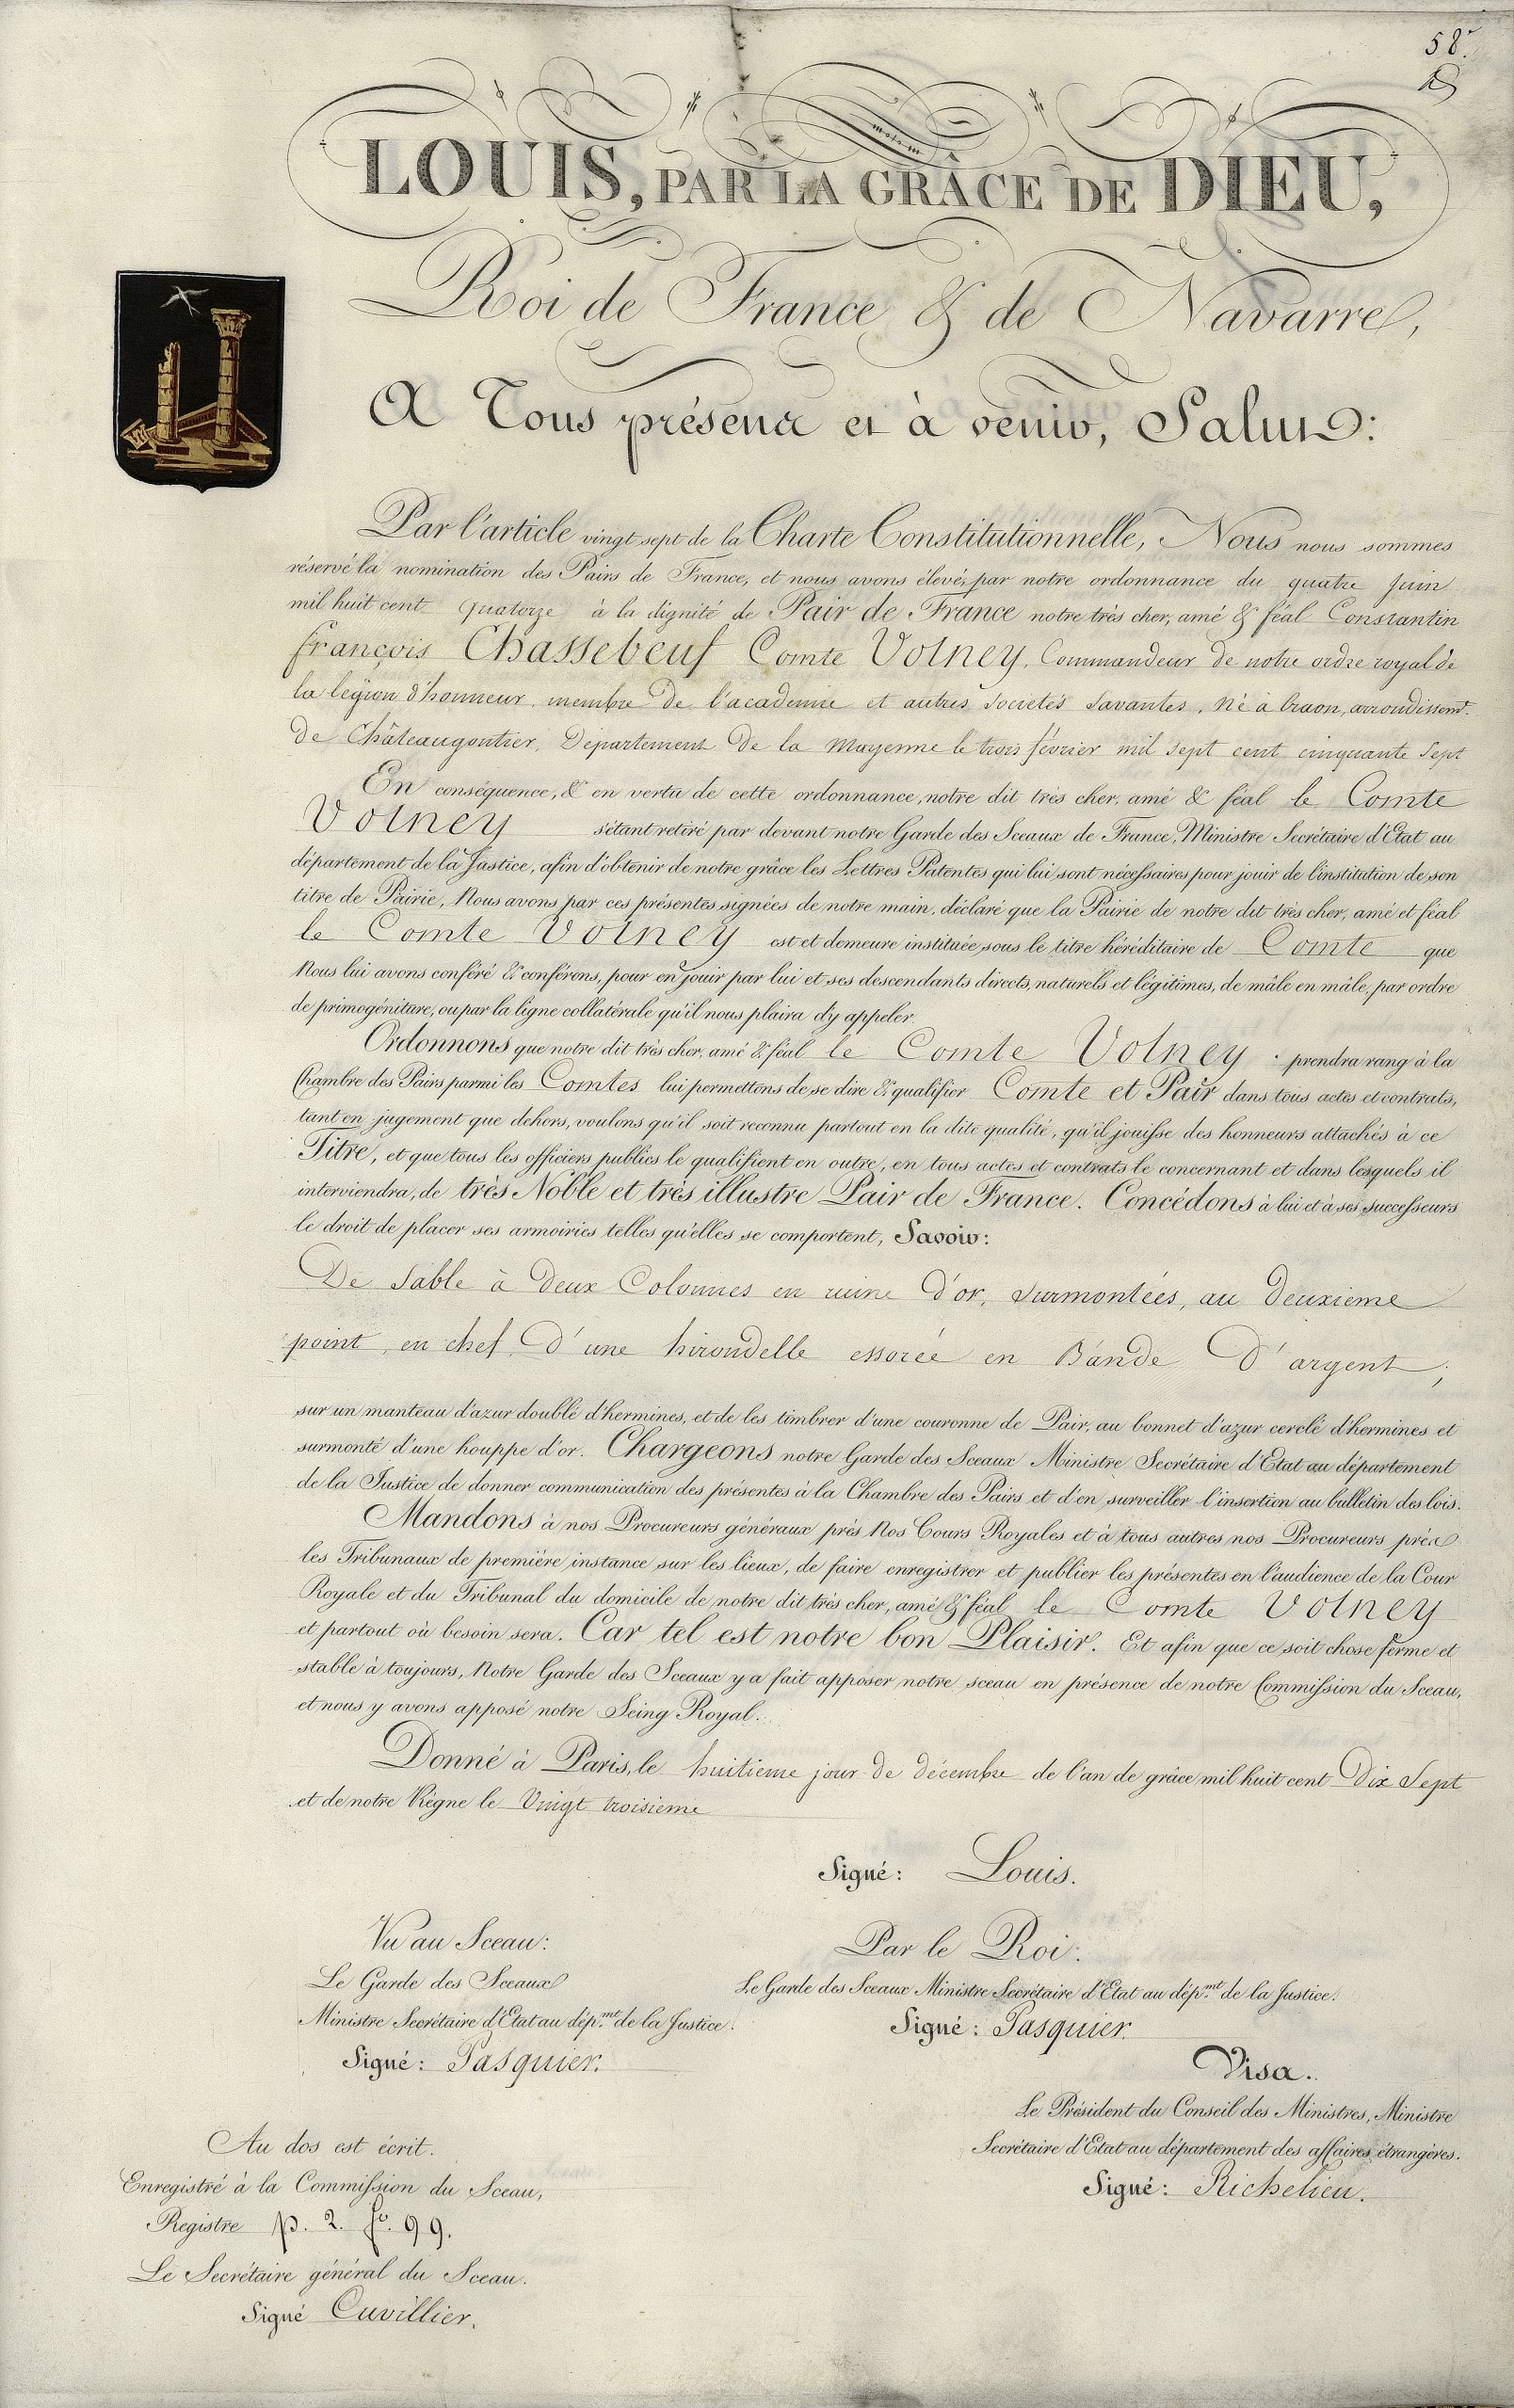 58.
LOUIS, PAR LA GRÂCE DE DIEU,
Roi de France & de Navarre,
A Tous présens et à venir, Salut:
Par l'article vingt sept de la Charte Constitutionnelle, Nous nous sommes
réservé la nomination des Pairs de France, et nous avons élevé, par notre ordonnance du quatre Juin
mil huit cent quatorze à la dignité de Pair de France notre très cher, amé & féal Constantin
françois Chassebeuf Comte Volney, Commandeur de notre ordre royal de
la légion d'honneur, membre de l'académie et autres sociétés savantes, né à Craon, arrondissemt.
de Châteaugontier, Département de la Mayenne le trois février mil sept cent cinquante sept
En conséquence, & en vertu de cette ordonnance, notre dit très cher, amé & féal le Comte
Volney s'étant retiré par devant notre Garde des Sceaux de France, Ministre Secrétaire d'Etat au
département de la Justice, afin d'obtenir de notre grâce les Lettres Patentes qui lui sont nécessaires pour jouir de l'institution de son
titre de Pairie, Nous avons par ces présentes signées de notre main, déclaré que la Pairie de notre dit très cher, amé et féal
le Comte Volney est et demeure instituée sous le titre héréditaire de Comte que
Nous lui avons conféré & conférons, pour en jouir par lui et ses descendants directs, naturels et légitimes, de mâle en mâle, par ordre
de primogéniture, ou par la ligne collatérale qu'il nous plaira d'y appeler
Ordonnons que notre dit très cher, amé & féal le Comte Volney prendra rang à la
Chambre des Pairs parmi les Comtes lui permettons de se dire & qualifier Comte et Pair dans tous actes et contrats,
tant en jugement que dehors, voulons qu'il soit reconnu partout en la dite qualité, qu'il jouisse des honneurs attachés à ce
Titre, et que tous les officiers publics le qualifient en outre, en tous actes et contrats le concernant et dans lesquels il
interviendra, de très Noble et très illustre Pair de France. Concédons à lui et à ses successeurs
le droit de placer ses armoiries telles qu'elles se comportent, Savoir:
De Sable à deux Colonnes en ruine d'or, surmontées, au deuxième
point, en chef, d'une hirondelle essorée en Bande d'argent;
sur un manteau d'azur doublé d'hermines, et de les timbrer d'une couronne de Pair, au bonnet d'azur cerclé d'hermines et
surmonté d'une houppe d'or. Chargeons notre Garde des Sceaux Ministre Secrétaire d'Etat au département
de la Justice de donner communication des présentes à la Chambre des Pairs et d'en surveiller l'insertion au bulletin des lois.
Mandons à nos Procureurs généraux près Nos Cours Royales et à tous autres nos Procureurs près
les Tribunaux de première instance sur les lieux, de faire enregistrer et publier les présentes en l'audience de la Cour
Royale et du Tribunal du domicile de notre dit très cher, amé & féal le Comte Volney
et partout où besoin sera. Car tel est notre bon Plaisir. Et afin que ce soit chose ferme et
stable à toujours, Notre Garde des Sceaux y a fait apposer notre sceau en présence de notre Commission du Sceau,
et nous y avons apposé notre Seing Royal.
Donné à Paris, le huitieme jour de décembre de l'an de grâce mil huit cent Dix Sept
et de notre Règne le Vingt troisieme
Signé: Louis.
Vu au Sceau:
Le Garde des Sceaux
Ministre Secrétaire d'Etat au dép.mt de la Justice.
Signé: Pasquier.
Par le Roi:
Le Garde des Sceaux Ministre Secrétaire d'Etat au dép.mt de la Justice.
Signé: Pasquier.
Visa.
Le Président du Conseil des Ministres, Ministre
Secrétaire d'Etat au département des affaires étrangères.
Signé: Richelieu.
Au dos est écrit.
Enregistré à la Commission du Sceau,
Registre p. 2. f.o 99.
Le Secrétaire général du Sceau.
Signé Cuvillier.